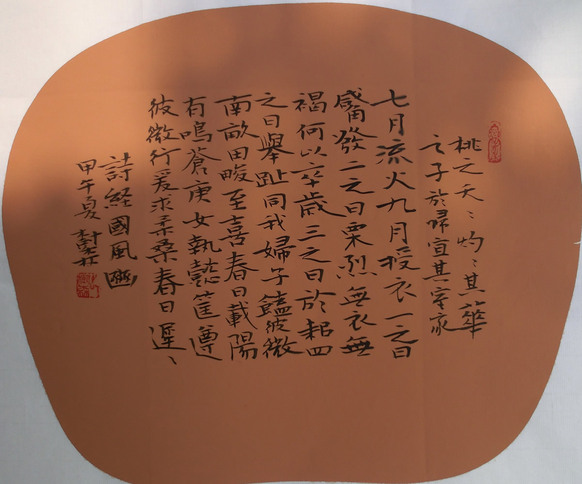 桃之夭〻灼〻其華
之子於歸宜其室家
七月流火九月授衣一之日
觱發二之日栗烈無衣無
褐何以卒歲三之日於耜四
之日舉趾同我婦子饁彼微
南畝田畯至喜春日載陽
有鳴蒼庚女執懿筐遵
彼微行爰求柔桑春日遲〻
詩経國風豳
甲午夏